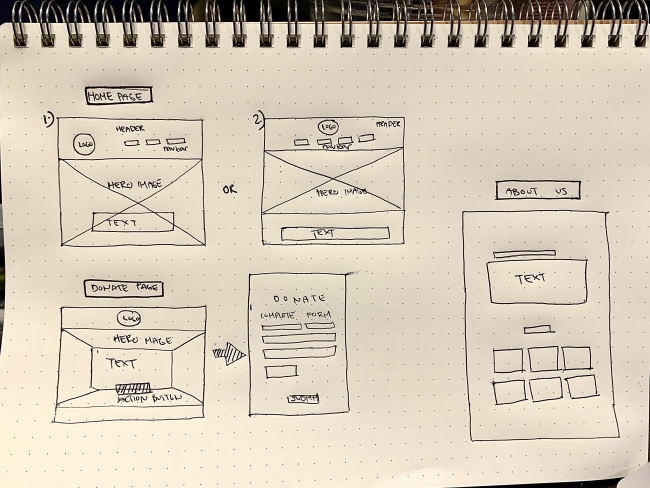 HOME PAGE
1.)
HEADER
LOGO
navbar
HERO IMAGE
TEXT
OR
2)
LOGO
HEADER
navbar
HERO IMAGE
TEXT
ABOUT US
TEXT
DONATE PAGE
LOGO
HERO IMAGE
TEXT
ACTION BUTTON
DONATE
COMPLETE FORM
SUBMIT